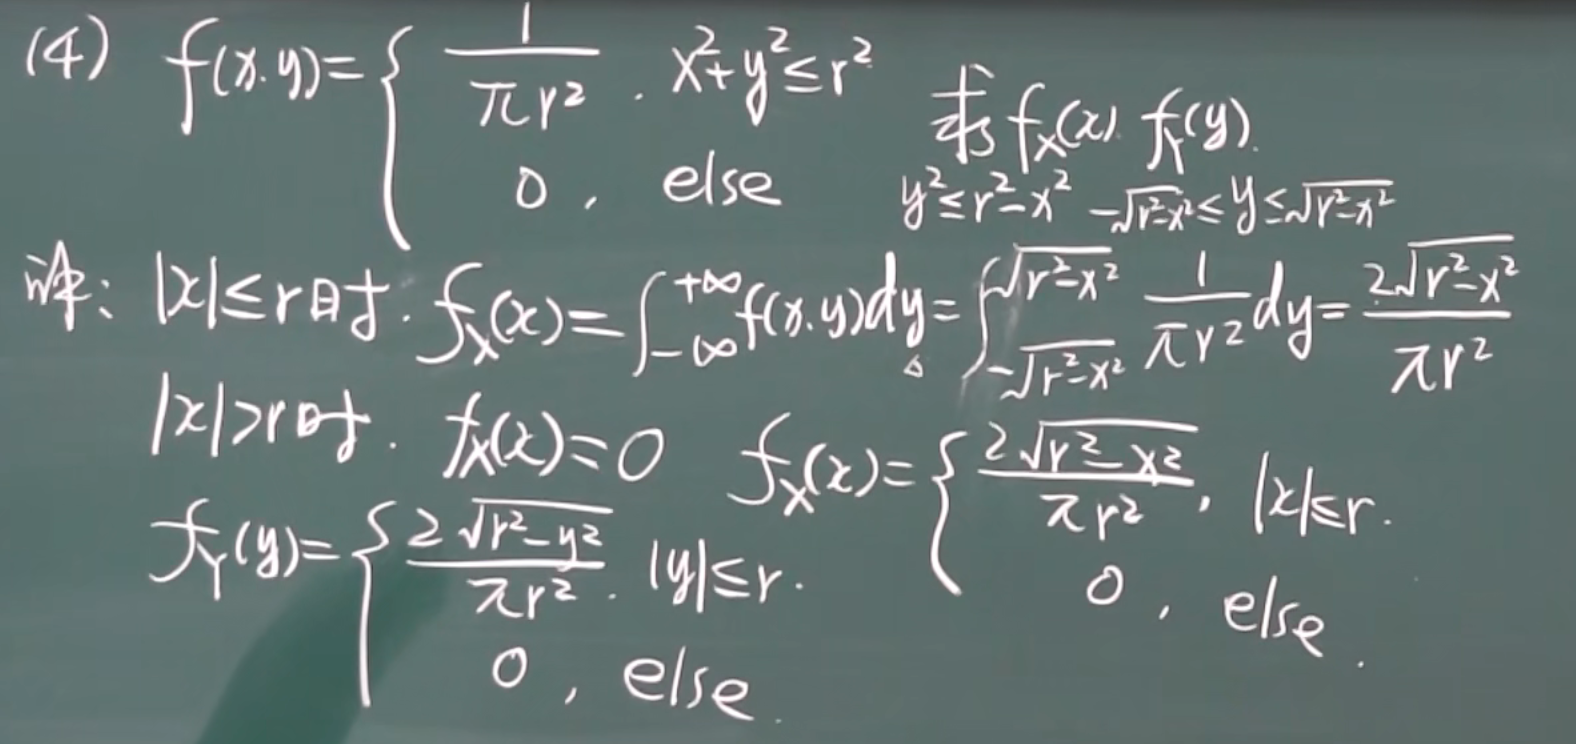 (4) f(x,y)={ 1/(πr²), x²+y²≤r²
0, else
求 f_X(x). f_Y(y).
y²≤r²-x² -√(r²-x²)≤y≤√(r²-x²)
解: |x|≤r时. f_X(x)=∫_{-∞}^{+∞} f(x,y)dy=∫_{-√(r²-x²)}^{√(r²-x²)} 1/(πr²) dy= 2√(r²-x²)/(πr²)
|x|>r时. f_X(x)=0 f_X(x)={ 2√(r²-x²)/(πr²), |x|≤r.
0, else.
f_Y(y)={ 2√(r²-y²)/(πr²). |y|≤r.
0, else.